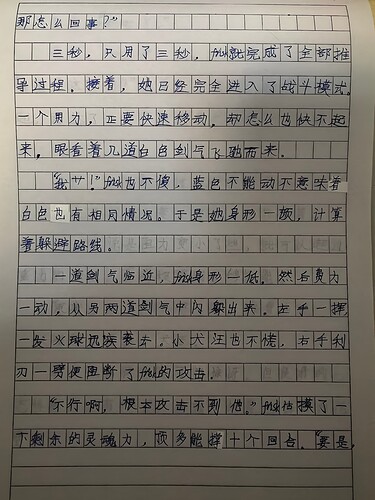 那怎么回事？"
三秒，只用了三秒，她就完成了全部推
导过程。接着，她已经完全进入了战斗模式。
一个用力，正要快速移动。却怎么也快不起
来。眼看着几道白色剑气飞驰而来。
"我艹！"她也不傻，蓝色不能动不意味着
白色也有相同情况。于是她身形一顿，计算
着躲避路线。
一道剑气临近，她身形一低。然后费力
一动，从另两道剑气中闪躲出来。左手一挥，
一发火球迅疾袭去。小犬汪也不慌，右手利
刃一劈便阻断了她的攻击。
"不行啊，根本攻击不到他。"她估摸了一
下剩余的灵魂力，顶多能撑十个回合。"要是，